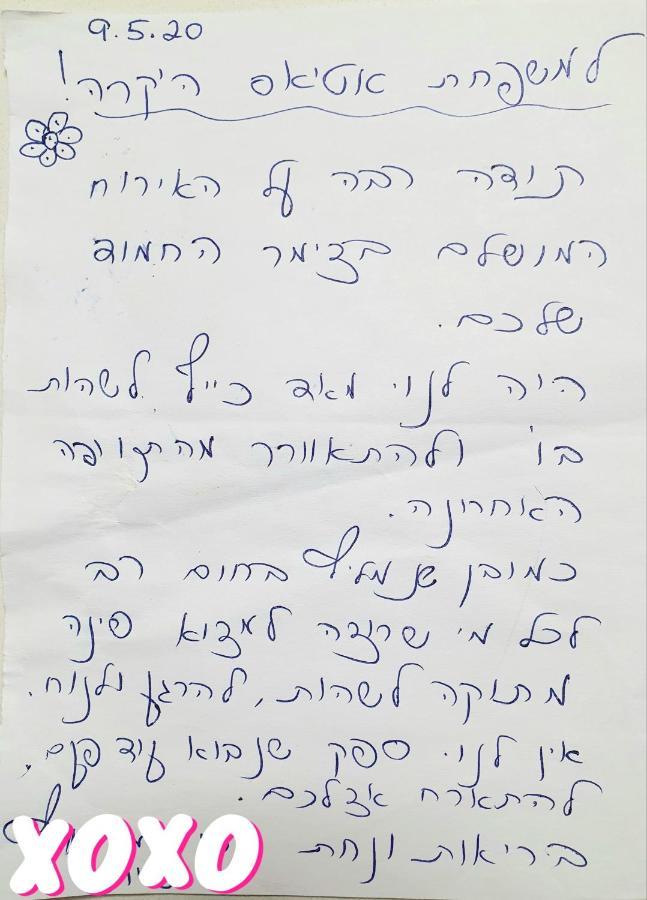 9.5.20
למשפחת אטיאס היקרה!
תודה רבה על האירוח
המושלם בצימר החמוד
שלכם.
היה לנו מאוד כייף לשהות
בו ולהתאוורר מהתקופה
האחרונה.
כמובן שנמליץ בחום רב
לכל מי שרוצה למצוא פינה
מתוקה לשהות, להרגע ולנוח.
אין לנו ספק שנבוא עוד פעם,
להתארח אצלכם.
בריאות ונחת
XOXO